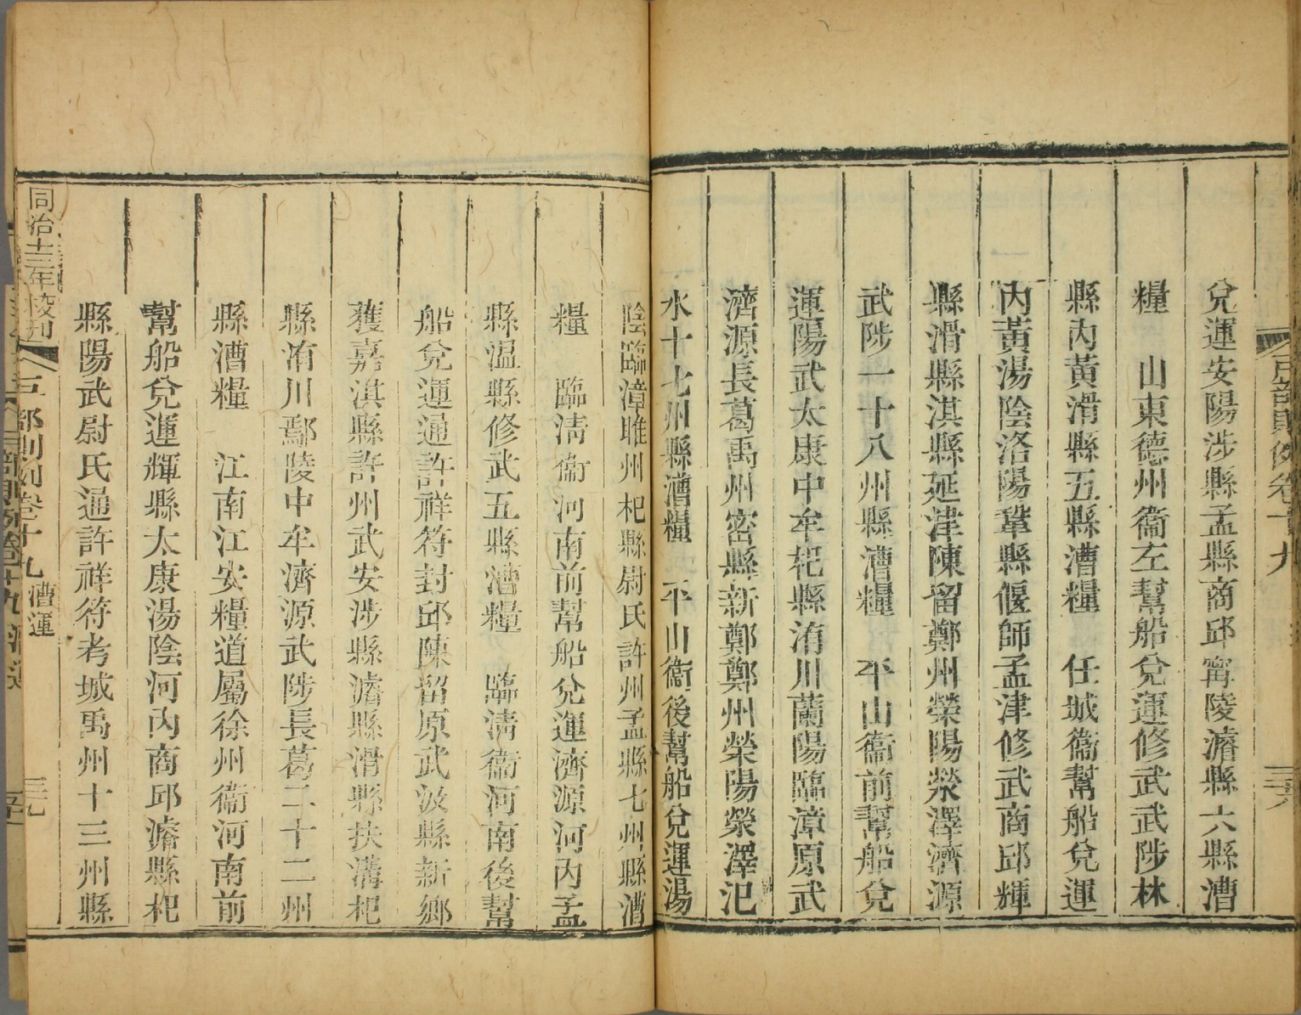 兌運安陽涉縣孟縣商邱寗陵濬縣六縣漕
糧　山東德州衞左幫船兌運修武武陟林
縣內黃滑縣五縣漕糧　任城衞幫船兌運
內黃湯陰洛陽鞏縣偃師孟津修武商邱輝
縣滑縣淇縣延津陳留鄭州榮陽滎澤濟源
武陟一十八州縣漕糧　平山衞前幫船兌
運陽武太康中牟杞縣洧川蘭陽臨漳原武
濟源長葛禹州密縣新鄭鄭州榮陽滎澤汜
水十七州縣漕糧　平山衞後幫船兌運湯
陰臨漳睢州杞縣尉氏許州孟縣七州縣漕
糧　臨淸衞河南前幫船兌運濟源河內孟
縣溫縣修武五縣漕糧　臨淸衞河南後幫
船兌運通許祥符封邱陳留原武汲縣新鄉
獲嘉淇縣許州武安涉縣濬縣滑縣扶溝杞
縣洧川鄢陵中牟濟源武陟長葛二十二州
縣漕糧　江南江安糧道屬徐州衞河南前
幫船兌運輝縣太康湯陰河內商邱濬縣杞
縣陽武尉氏通許祥符考城禹州十三州縣
同治十二年校刊
戶部則例卷十九　漕運